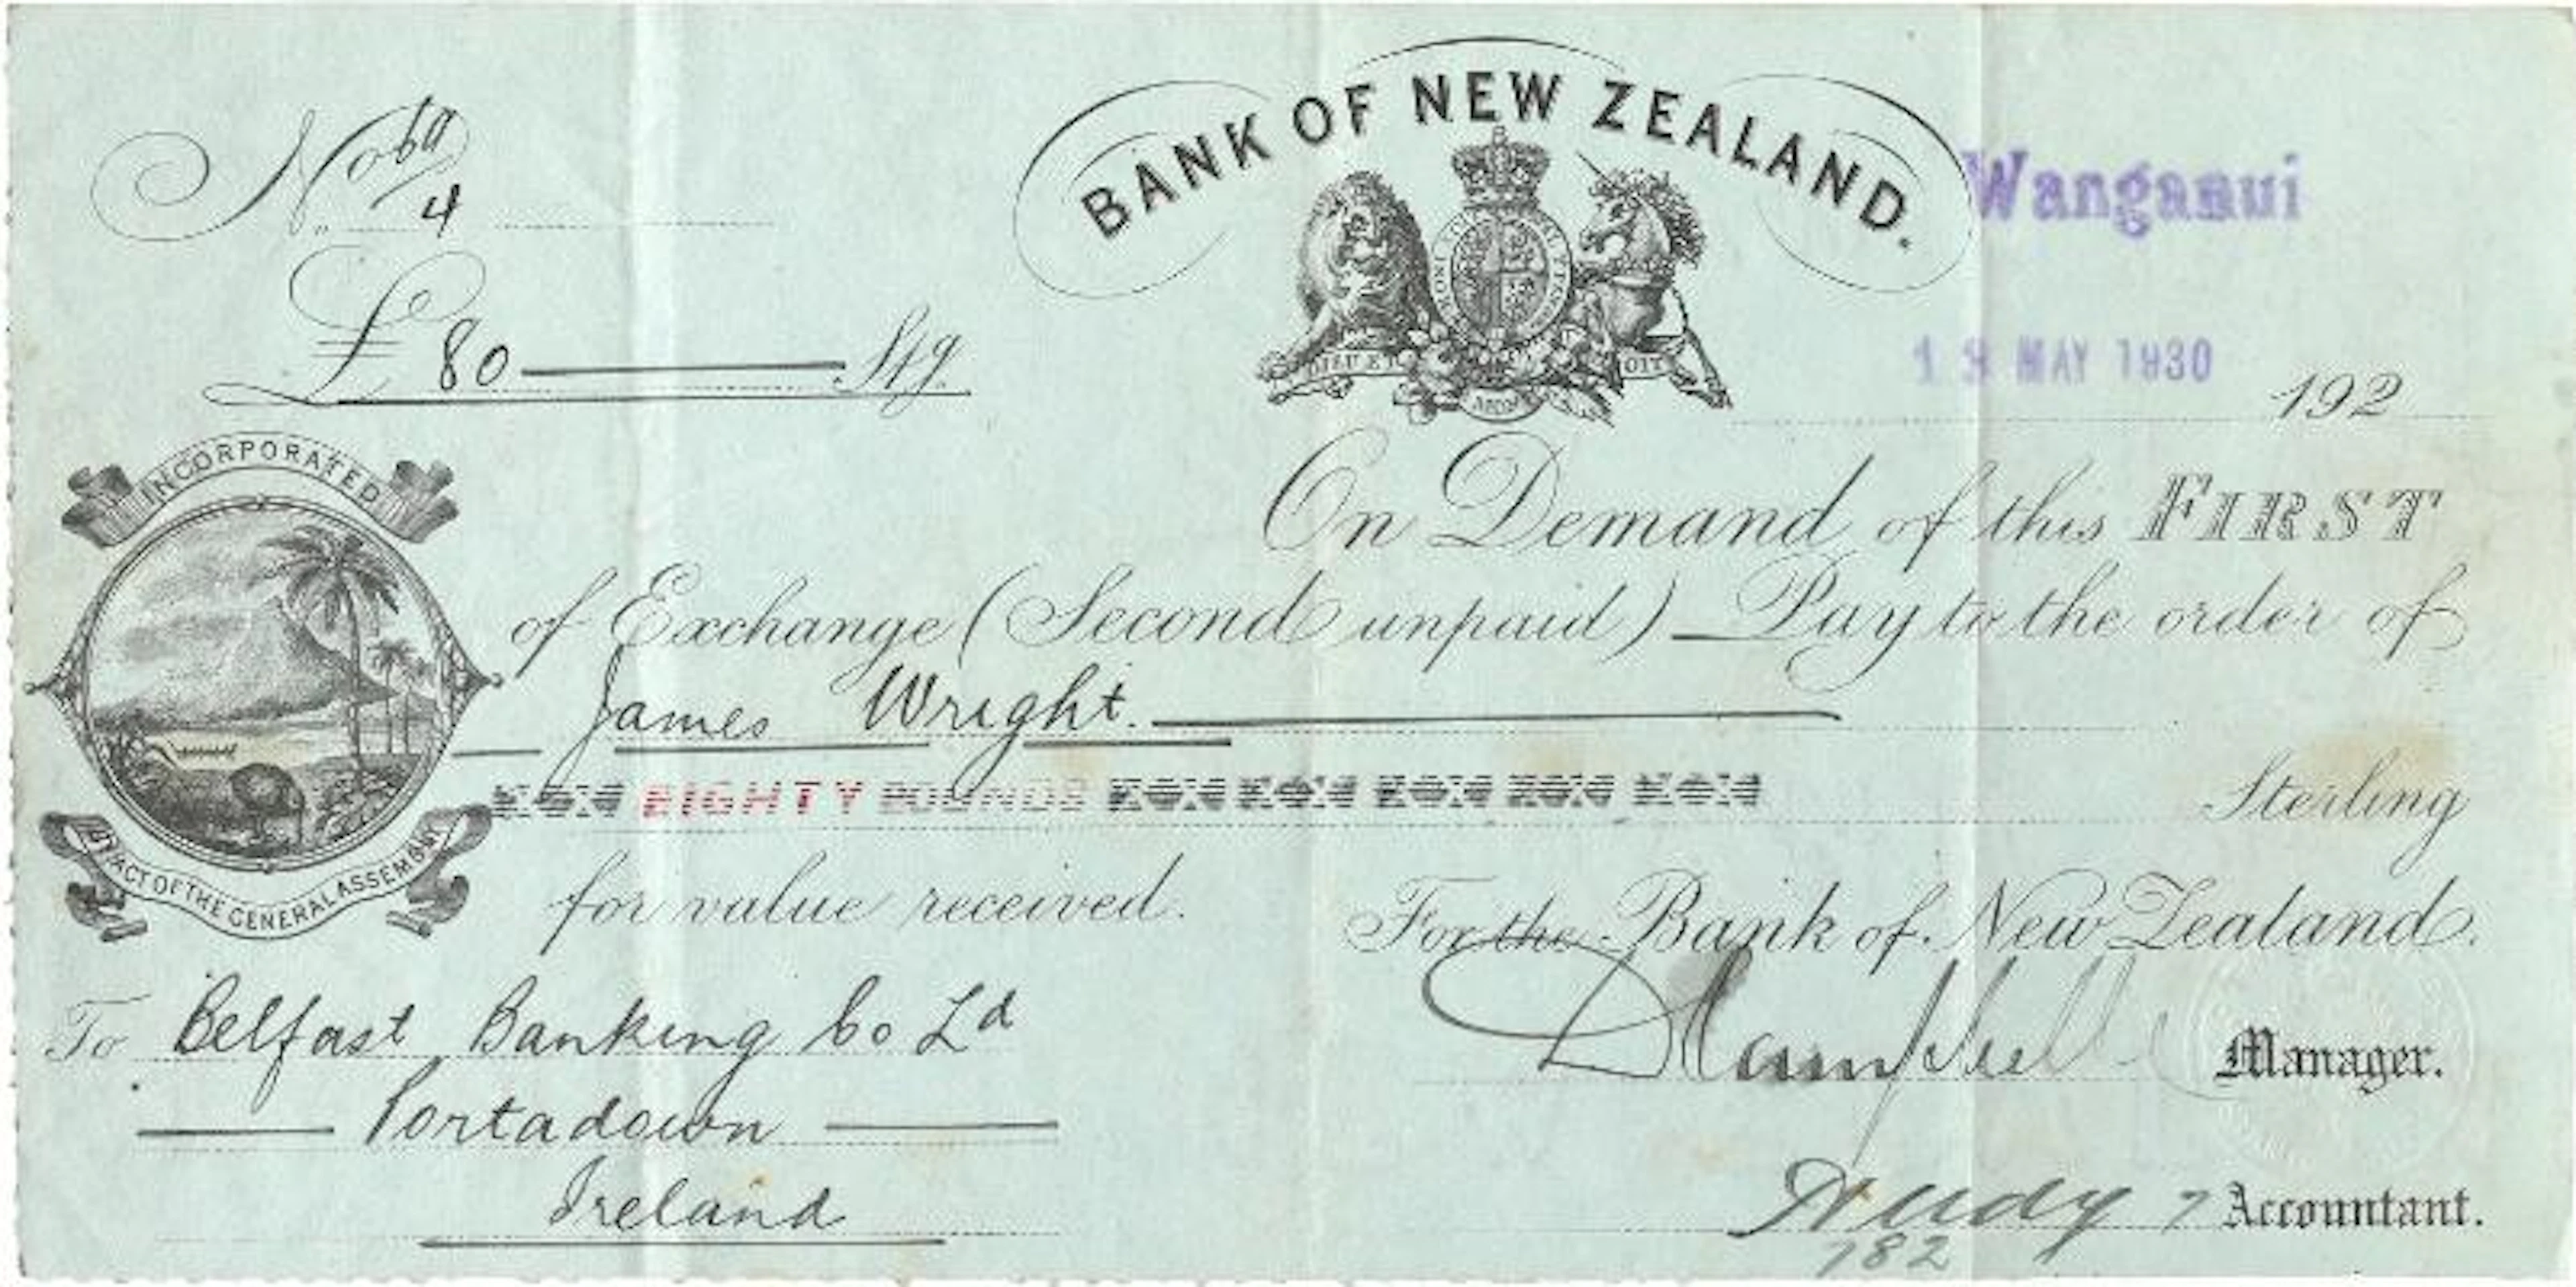 No 69/4
BANK OF NEW ZEALAND.
Wanganui
£ 80 Stg.
MAY 1930 192
DIEU ET
INCORPORATED
BY ACT OF THE GENERAL ASSEMBLY
On Demand of this FIRST
of Exchange (Second unpaid) Pay to the order of
James Wright.
EIGHTY POUNDS Sterling
for value received.
For the Bank of New Zealand.
To Belfast Banking Co Ld
Manager.
Portadown
Ireland
Accountant.
182